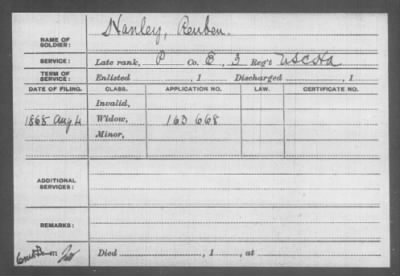 NAME OF SOLDIER: Hanley, Reuben.
SERVICE: Late rank, P Co. E, 3 Reg't USCHA
TERM OF SERVICE: Enlisted , 1 Discharged , 1
DATE OF FILING. CLASS. APPLICATION NO. LAW. CERTIFICATE NO.
Invalid,
1868 Aug 4 Widow, 163 668
Minor,
ADDITIONAL SERVICES:
REMARKS:
Died , 1 , at